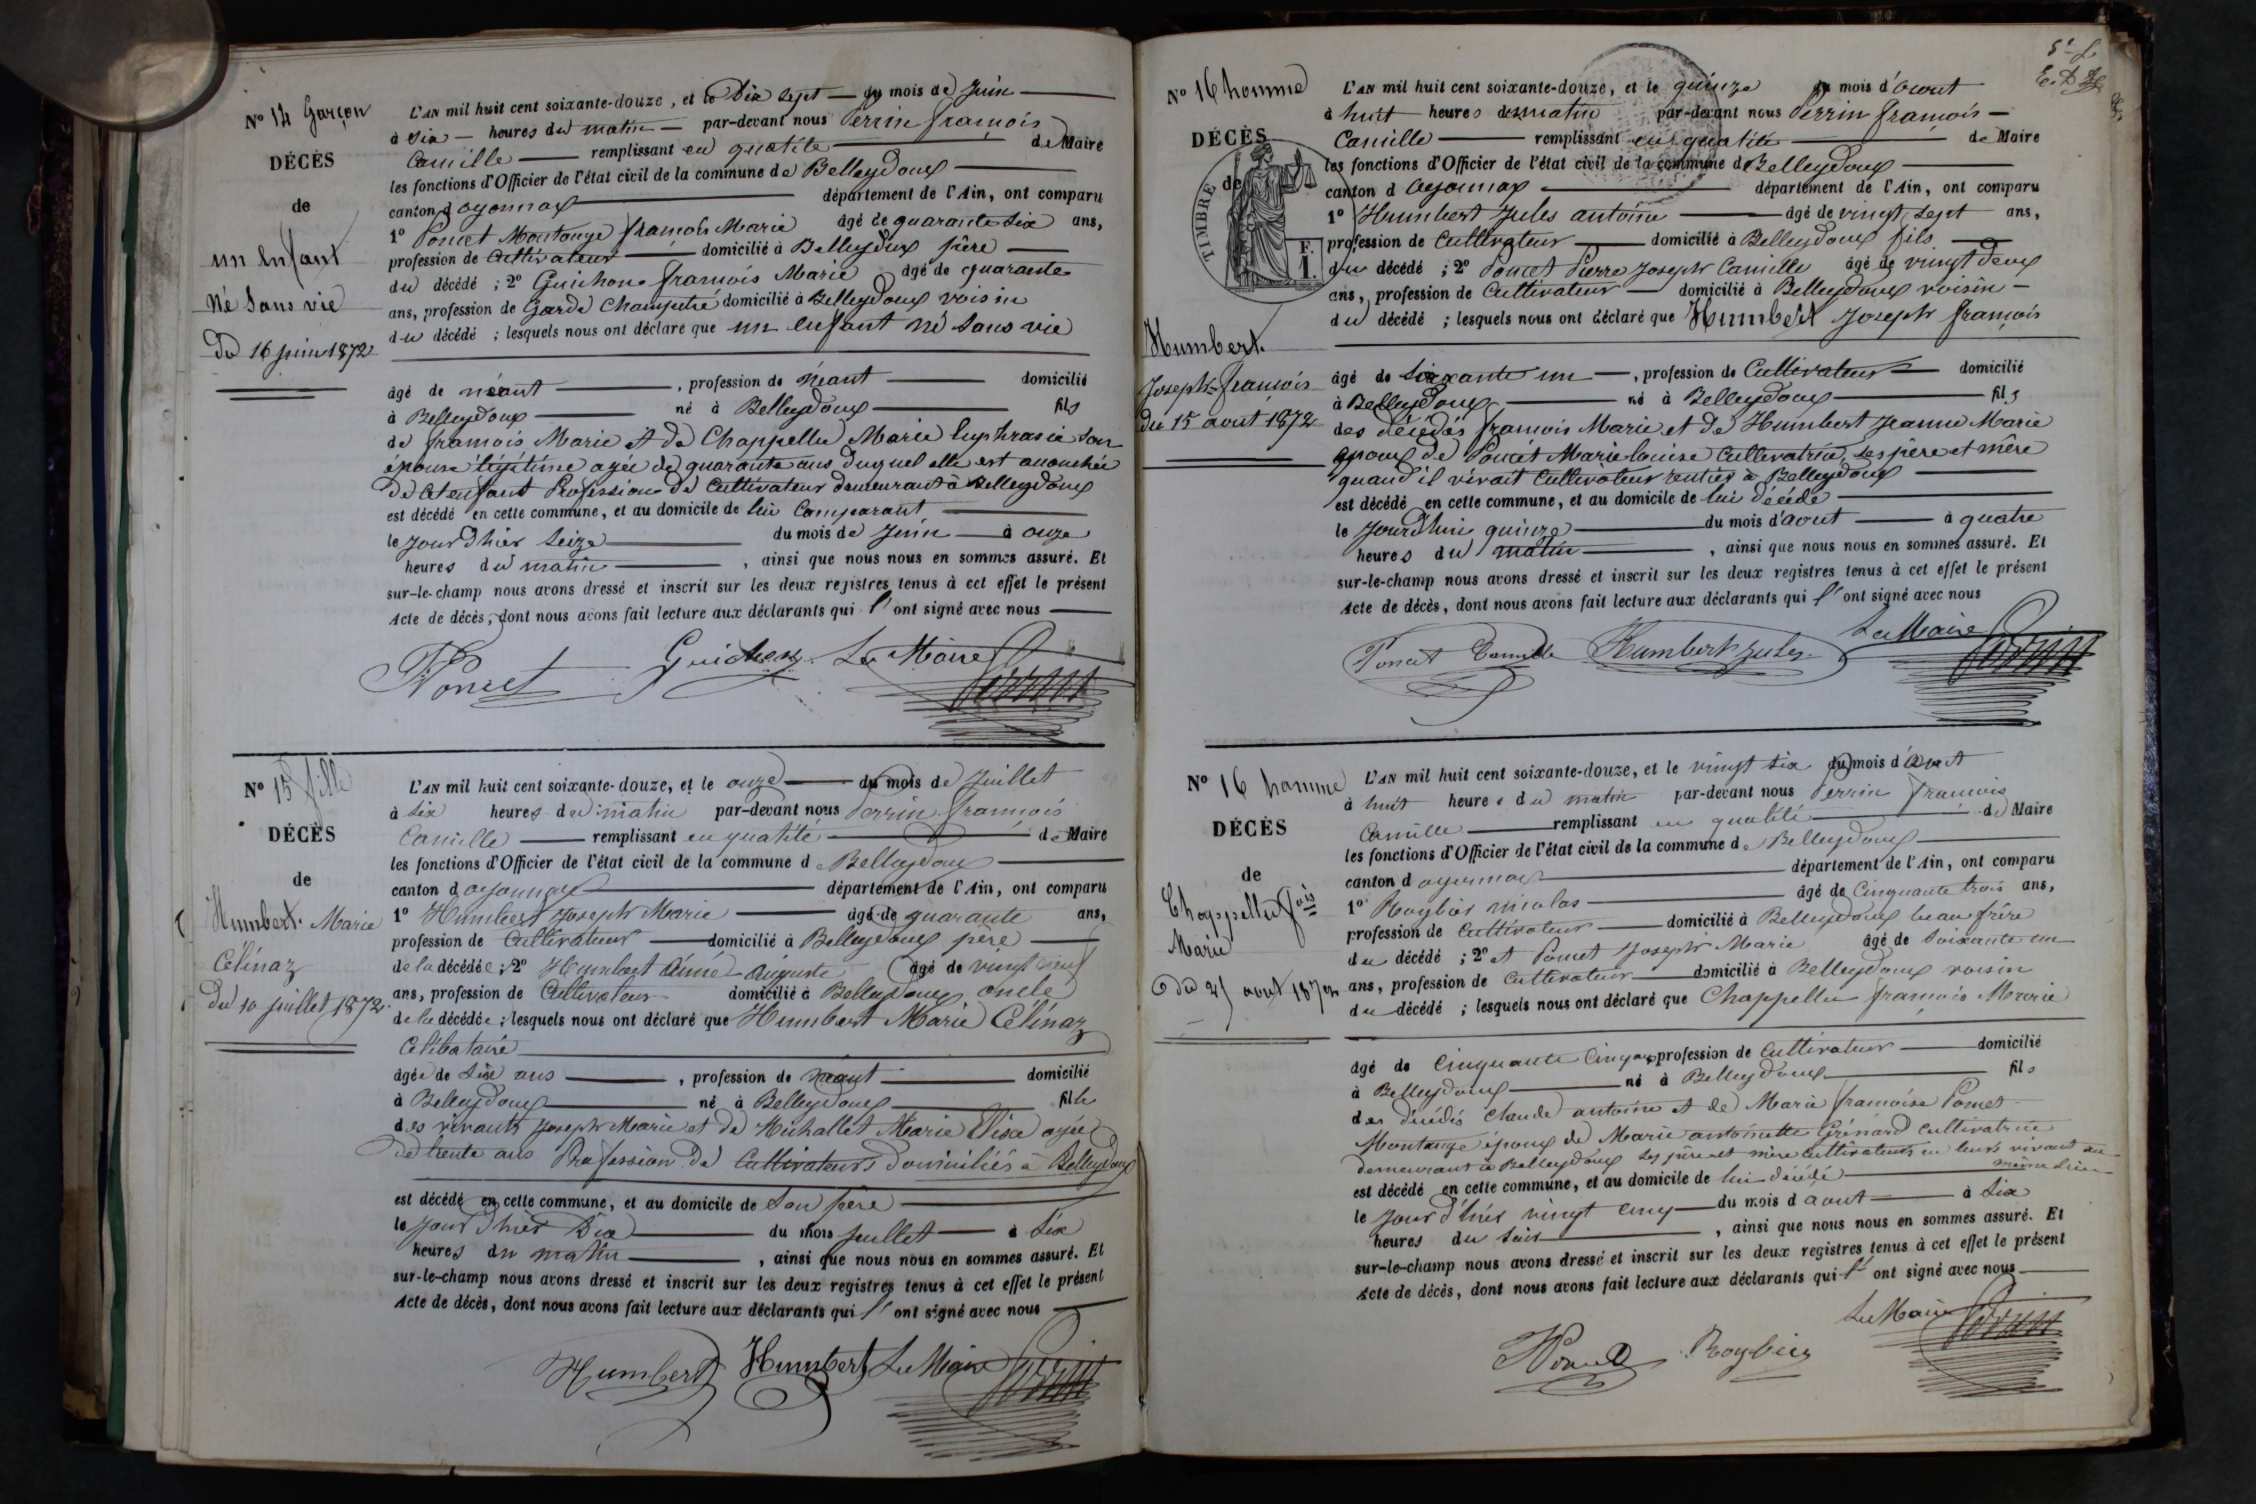 N° 14 Garçon
DÉCÈS
de
un Enfant
Né Sans vie
Du 16 juin 1872
L'AN mil huit cent soixante-douze, et le Dix Sept du mois de Juin
à Six heures du matin par-devant nous Perrin françois
Camille remplissant en qualité de Maire
les fonctions d'Officier de l'état civil de la commune de Belleydoux
canton d'oyonnax département de l'Ain, ont comparu
1° Poncet Montange françois Marie âgé de quarante six ans,
profession de Cultivateur domicilié à Belleydoux père
du décédé ; 2° Guichon françois Marie âgé de quarante
ans, profession de Garde Champetre domicilié à Belleydoux voisin
du décédé ; lesquels nous ont déclaré que un enfant né Sans vie
âgé de néant, profession de Néant domicilié
à Belleydoux né à Belleydoux fils
de françois Marie et de Chappellu Marie Euphrasie son
épouse légitime agée de quarante ans duquel elle est accouchée
de cet enfant Profession de Cultivateur demeurant à Belleydoux
est décédé en cette commune, et au domicile de lui Comparant
le jour d'hier Seize du mois de Juin à onze
heures du matin, ainsi que nous nous en sommes assuré. Et
sur-le-champ nous avons dressé et inscrit sur les deux registres tenus à cet effet le présent
Acte de décès, dont nous avons fait lecture aux déclarants qui l' ont signé avec nous
Poncet Guichon Le Maire Perrin
N° 15 fille
DÉCÈS
de
Humbert Marie
Célinaz
Du 10 juillet 1872
L'AN mil huit cent soixante-douze, et le onze du mois de Juillet
à Six heures du matin par-devant nous Perrin françois
Camille remplissant en qualité de Maire
les fonctions d'Officier de l'état civil de la commune de Belleydoux
canton d'oyonnax département de l'Ain, ont comparu
1° Humbert Joseph Marie âgé de quarante ans,
profession de Cultivateur domicilié à Belleydoux père
de la décédée ; 2° Humbert Aimé Auguste âgé de vingt neuf
ans, profession de Cultivateur domicilié à Belleydoux, oncle
de la décédée ; lesquels nous ont déclaré que Humbert Marie Célinaz
Célibataire
âgée de Six ans, profession de néant domicilié
à Belleydoux né à Belleydoux fille
des vivants Joseph Marie et de Michallet Marie Elisa agée
de trente ans Profession de Cultivateurs domiciliés à Belleydoux
est décédé en cette commune, et au domicile de Son père
le jour d'hier Dix du mois Juillet à Six
heures du matin, ainsi que nous nous en sommes assuré. Et
sur-le-champ nous avons dressé et inscrit sur les deux registres tenus à cet effet le présent
Acte de décès, dont nous avons fait lecture aux déclarants qui l' ont signé avec nous
Humbert Humbert Le Maire Perrin
N° 16 homme
DÉCÈS
de
TIMBRE
F.
1.
Humbert
Joseph-françois
du 15 aout 1872
L'AN mil huit cent soixante-douze, et le quinze du mois d'Aout
à huit heures du matin par-devant nous Perrin françois
Camille remplissant en qualité de Maire
les fonctions d'Officier de l'état civil de la commune de Belleydoux
canton d'Oyonnax département de l'Ain, ont comparu
1° Humbert Jules antoine âgé de vingt sept ans,
profession de Cultivateur domicilié à Belleydoux fils
du décédé ; 2° Poncet Pierre Joseph Camille âgé de vingt deux
ans, profession de Cultivateur domicilié à Belleydoux voisin
du décédé ; lesquels nous ont déclaré que Humbert Joseph françois
âgé de Soixante un, profession de Cultivateur domicilié
à Belleydoux né à Belleydoux fils
des décédés françois Marie et de Humbert Jeanne Marie
époux de Poncet Marie louise Cultivatrice, Ses père et mère
quand il vivait Cultivateur rentier à Belleydoux
est décédé en cette commune, et au domicile de lui décédé
le Jourd'hui quinze du mois d'aout à quatre
heures du matin, ainsi que nous nous en sommes assuré. Et
sur-le-champ nous avons dressé et inscrit sur les deux registres tenus à cet effet le présent
Acte de décès, dont nous avons fait lecture aux déclarants qui l' ont signé avec nous
Poncet Camille Humbert Jules Le Maire Perrin
N° 16 homme
DÉCÈS
de
Chappellu fois
Marie
du 25 aout 1872
L'AN mil huit cent soixante-douze, et le vingt six du mois d'Aout
à huit heures du matin par-devant nous Perrin francois
Camille remplissant en qualité de Maire
les fonctions d'Officier de l'état civil de la commune de Belleydoux
canton d'oyonnax département de l'Ain, ont comparu
1° Roybier nicolas âgé de Cinquante trois ans,
profession de Cultivateur domicilié à Belleydoux beau frère
du décédé ; 2° et Poncet Joseph Marie âgé de Soixante un
ans, profession de Cultivateur domicilié à Belleydoux voisin
du décédé ; lesquels nous ont déclaré que Chappellu françois Marie
âgé de Cinquante Cinq ans, profession de Cultivateur domicilié
à Belleydoux né à Belleydoux fils
des décédés Claude antoine et de Marie françoise Poncet
Montange époux de Marie antoinette Grénard Cultivatrice
demeurant à Belleydoux Ses père et mère Cultivateurs en leurs vivant au
même lieu
est décédé en cette commune, et au domicile de lui décédé
le Jour d'hier vingt cinq du mois d'aout à Six
heures du Soir, ainsi que nous nous en sommes assuré. Et
sur-le-champ nous avons dressé et inscrit sur les deux registres tenus à cet effet le présent
Acte de décès, dont nous avons fait lecture aux déclarants qui l' ont signé avec nous
Poncet Roybier Le Maire Perrin